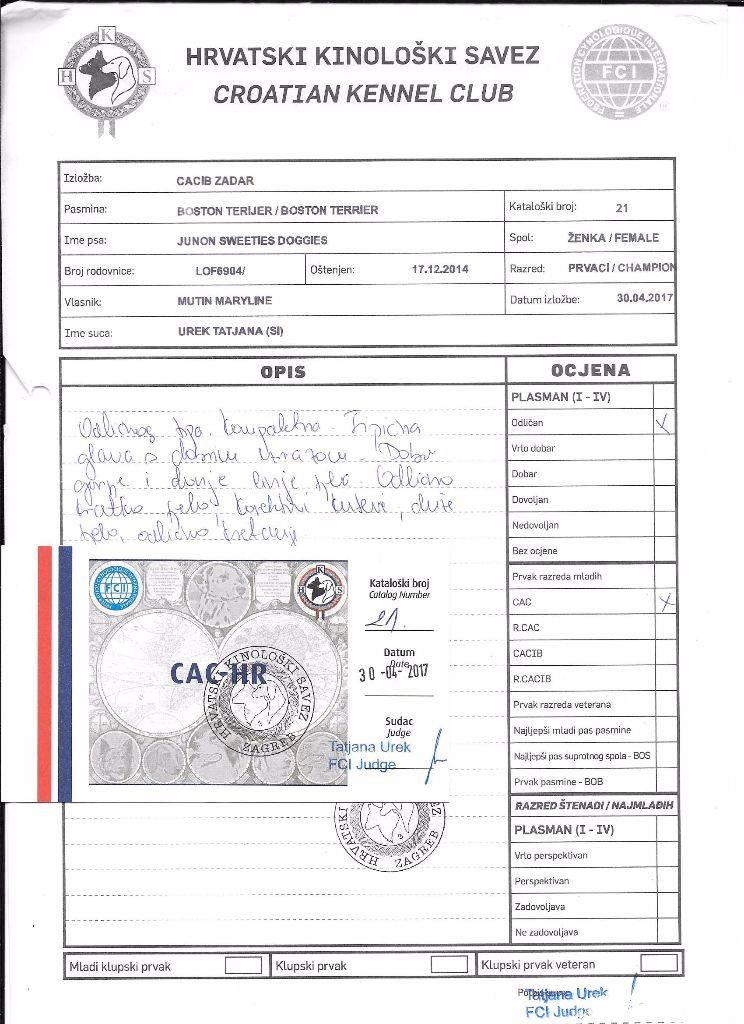 HRVATSKI KINOLOŠKI SAVEZ
CROATIAN KENNEL CLUB
H K S
FEDERATION CYNOLOGIQUE INTERNATIONALE
FCI
Izložba: CACIB ZADAR
Pasmina: BOSTON TERIJER / BOSTON TERRIER Kataloški broj: 21
Ime psa: JUNON SWEETIES DOGGIES Spol: ŽENKA / FEMALE
Broj rodovnice: LOF6904/ Oštenjen: 17.12.2014 Razred: PRVACI / CHAMPION
Vlasnik: MUTIN MARYLINE Datum izložbe: 30.04.2017
Ime suca: UREK TATJANA (SI)
OPIS OCJENA
PLASMAN (I - IV)
Odličan
Vrlo dobar
Dobar
Dovoljan
Nedovoljan
Bez ocjene
Prvak razreda mladih
CAC
R.CAC
CACIB
R.CACIB
Prvak razreda veterana
Najljepši mladi pas pasmine
Najljepši pas suprotnog spola - BOS
Prvak pasmine - BOB
RAZRED ŠTENADI / NAJMLAĐIH
PLASMAN (I - IV)
Vrlo perspektivan
Perspektivan
Zadovoljava
Ne zadovoljava
Odličnog tipa, kompaktna. Tipična
glava s dobrim izrazom. Dobre
gornje i donje linije
kratko tijelo, korektni kutevi,
odlično kretanje
FCI
H K S
CAC-HR
HRVATSKI KINOLOŠKI SAVEZ
ZAGREB
Kataloški broj
Catalog Number
21.
Datum
Date
30 -04- 2017
Sudac
Judge
Tatjana Urek
FCI Judge
HRVATSK
ZAGREB
Mladi klupski prvak Klupski prvak Klupski prvak veteran
Tatjana Urek
FCI Judge